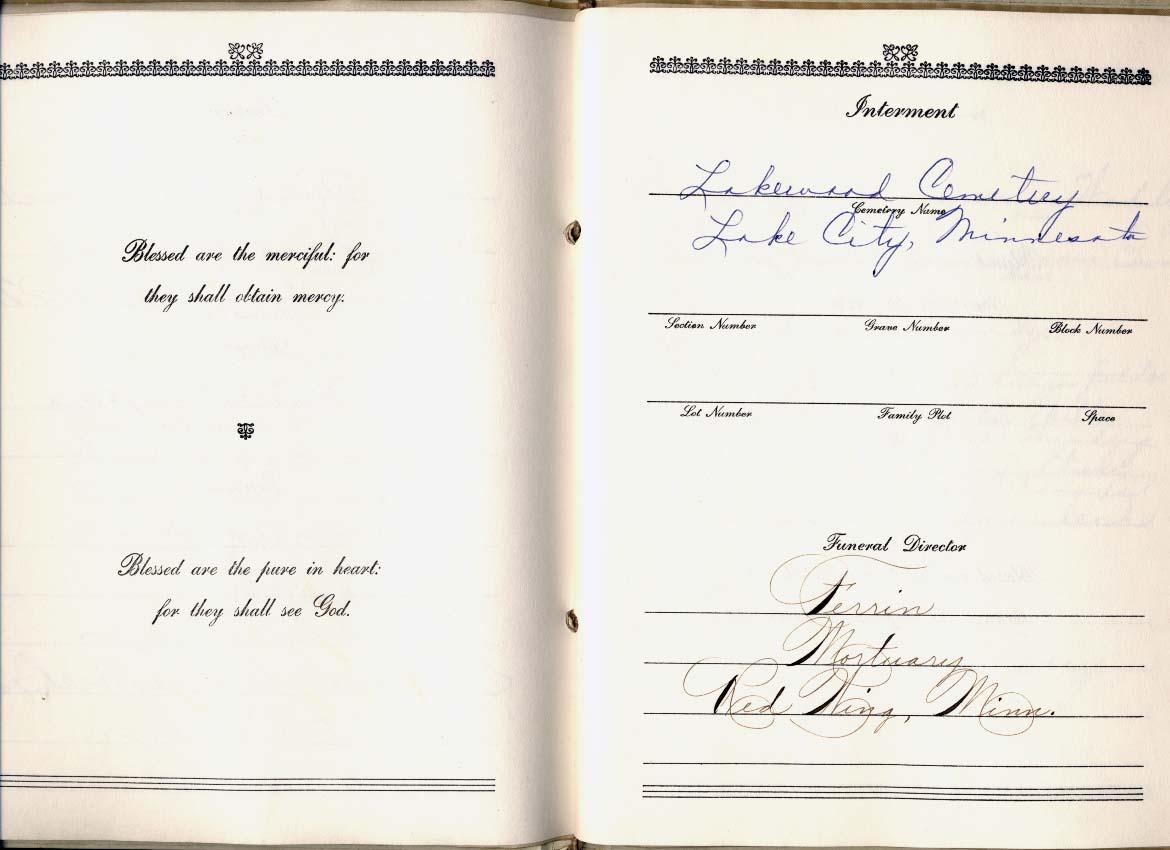 Blessed are the merciful: for
they shall obtain mercy.
Blessed are the pure in heart:
for they shall see God.
Interment
Lakewood Cemetrey
Cemetery Name
Lake City, Minnesota
Section Number Grave Number Block Number
Lot Number Family Plot Space
Funeral Director
Ferrin
Mortuary
Red Wing, Minn.